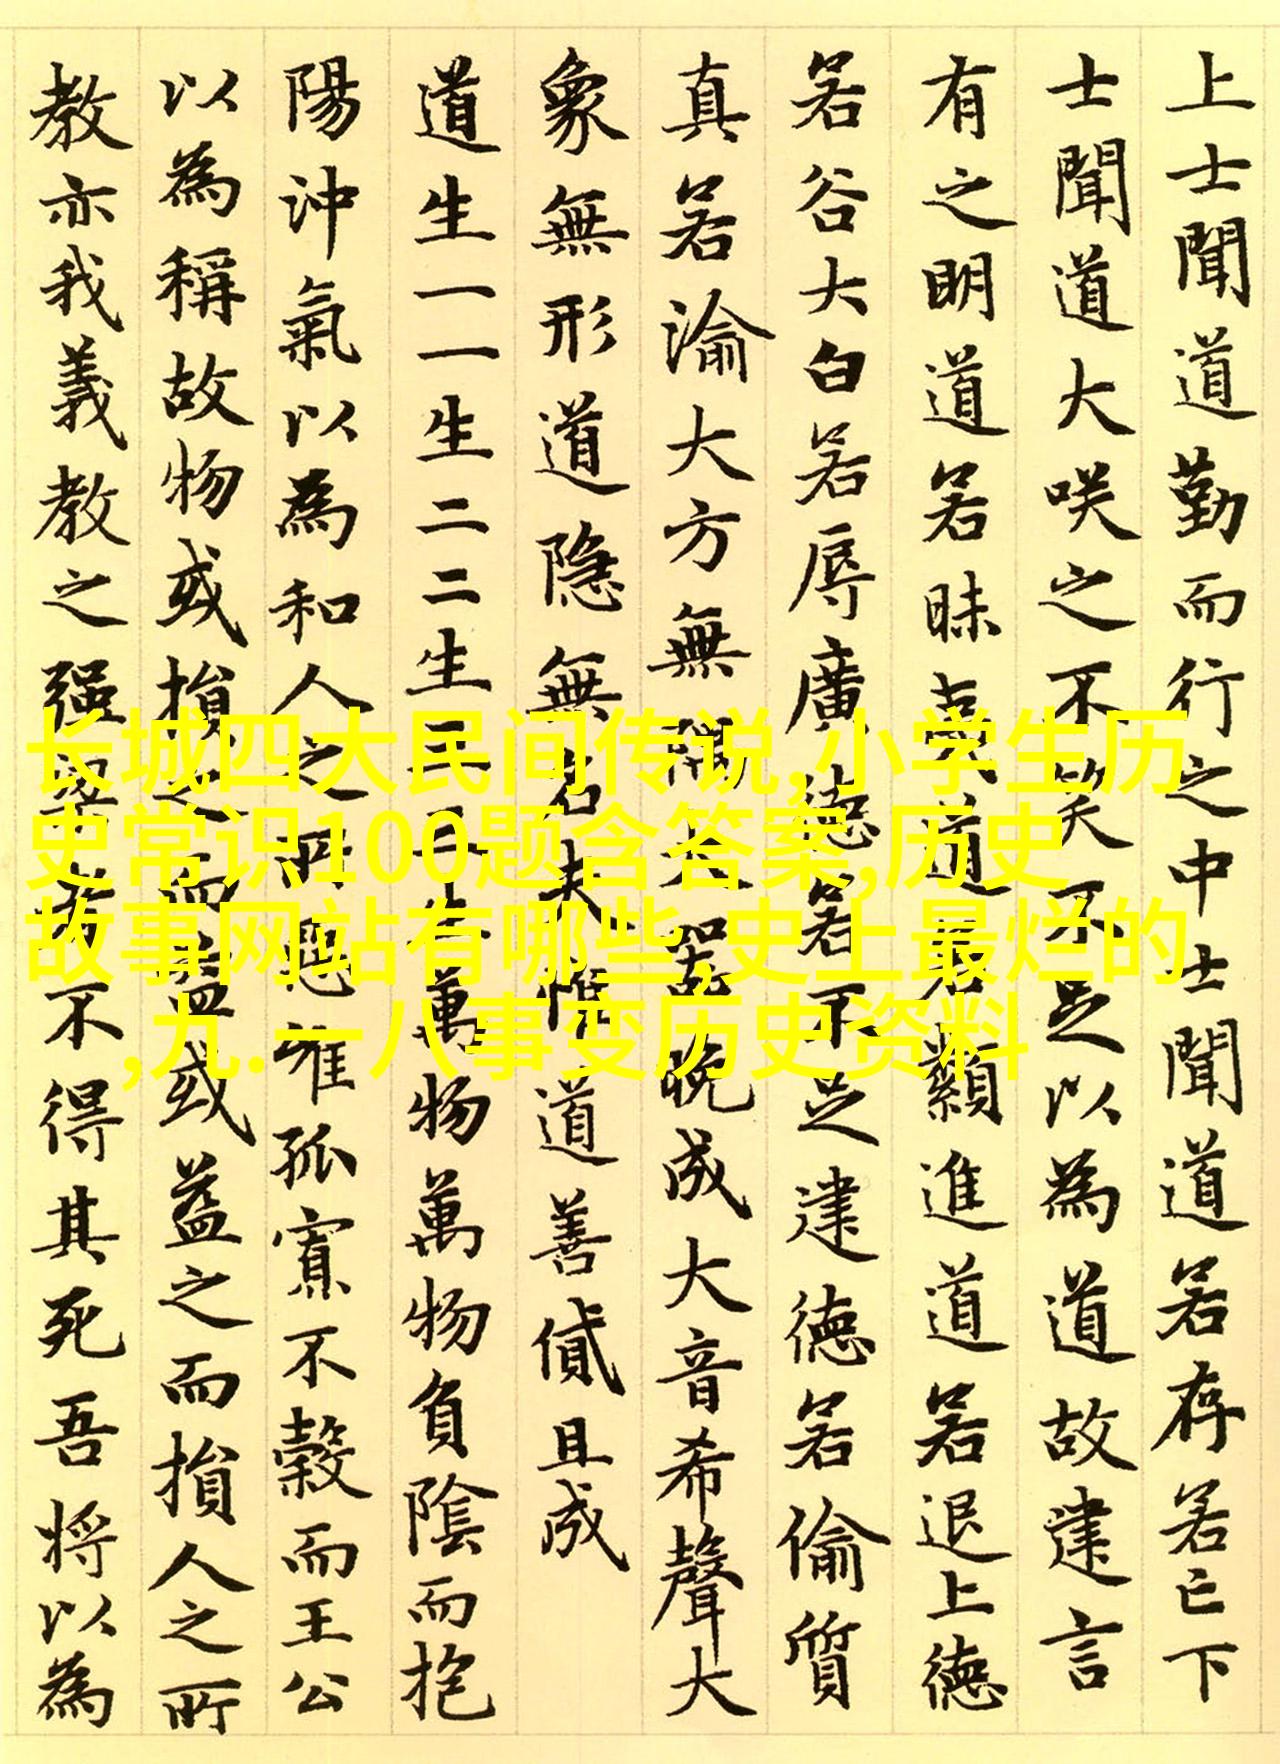 上士聞道勤而行之中士聞道若存若亡下
士聞道大咲之不笑不足以為道故建言
有之明道若昧夷道若纇進道若退上德
若谷大白若辱廣德若不足建德若偷質
真若渝大方無隅大器晚成大音希聲大
象無形道隐無名夫惟道善貸且成
道生一一生二二生三三生萬物萬物負陰而抱
陽沖氣以為和人之所惡唯孤寡不穀而王公
以為稱故物或損之而益或益之而損人之所
教亦我義教之强梁者不得其死吾将以為
长城四大民间传说,小学生历
史常识100题含答案,历史
故事网站有哪些,史上最烂的
,九.一八事变历史资料